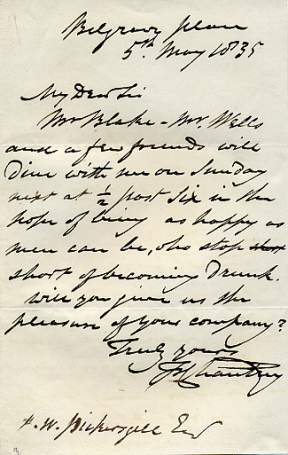 Belgrave place
5th May 1835
My Dear Sir
Mr Blake - Mr. Wells
and a few friends will
Dine with me on Sunday
next at ½ past Six in the
hope of being as happy as
men can be, who stop short
short of becoming Drunk.
will you give us the
pleasure of your company?
Truly yours
F Chantrey
H. W. Pickersgill Esq